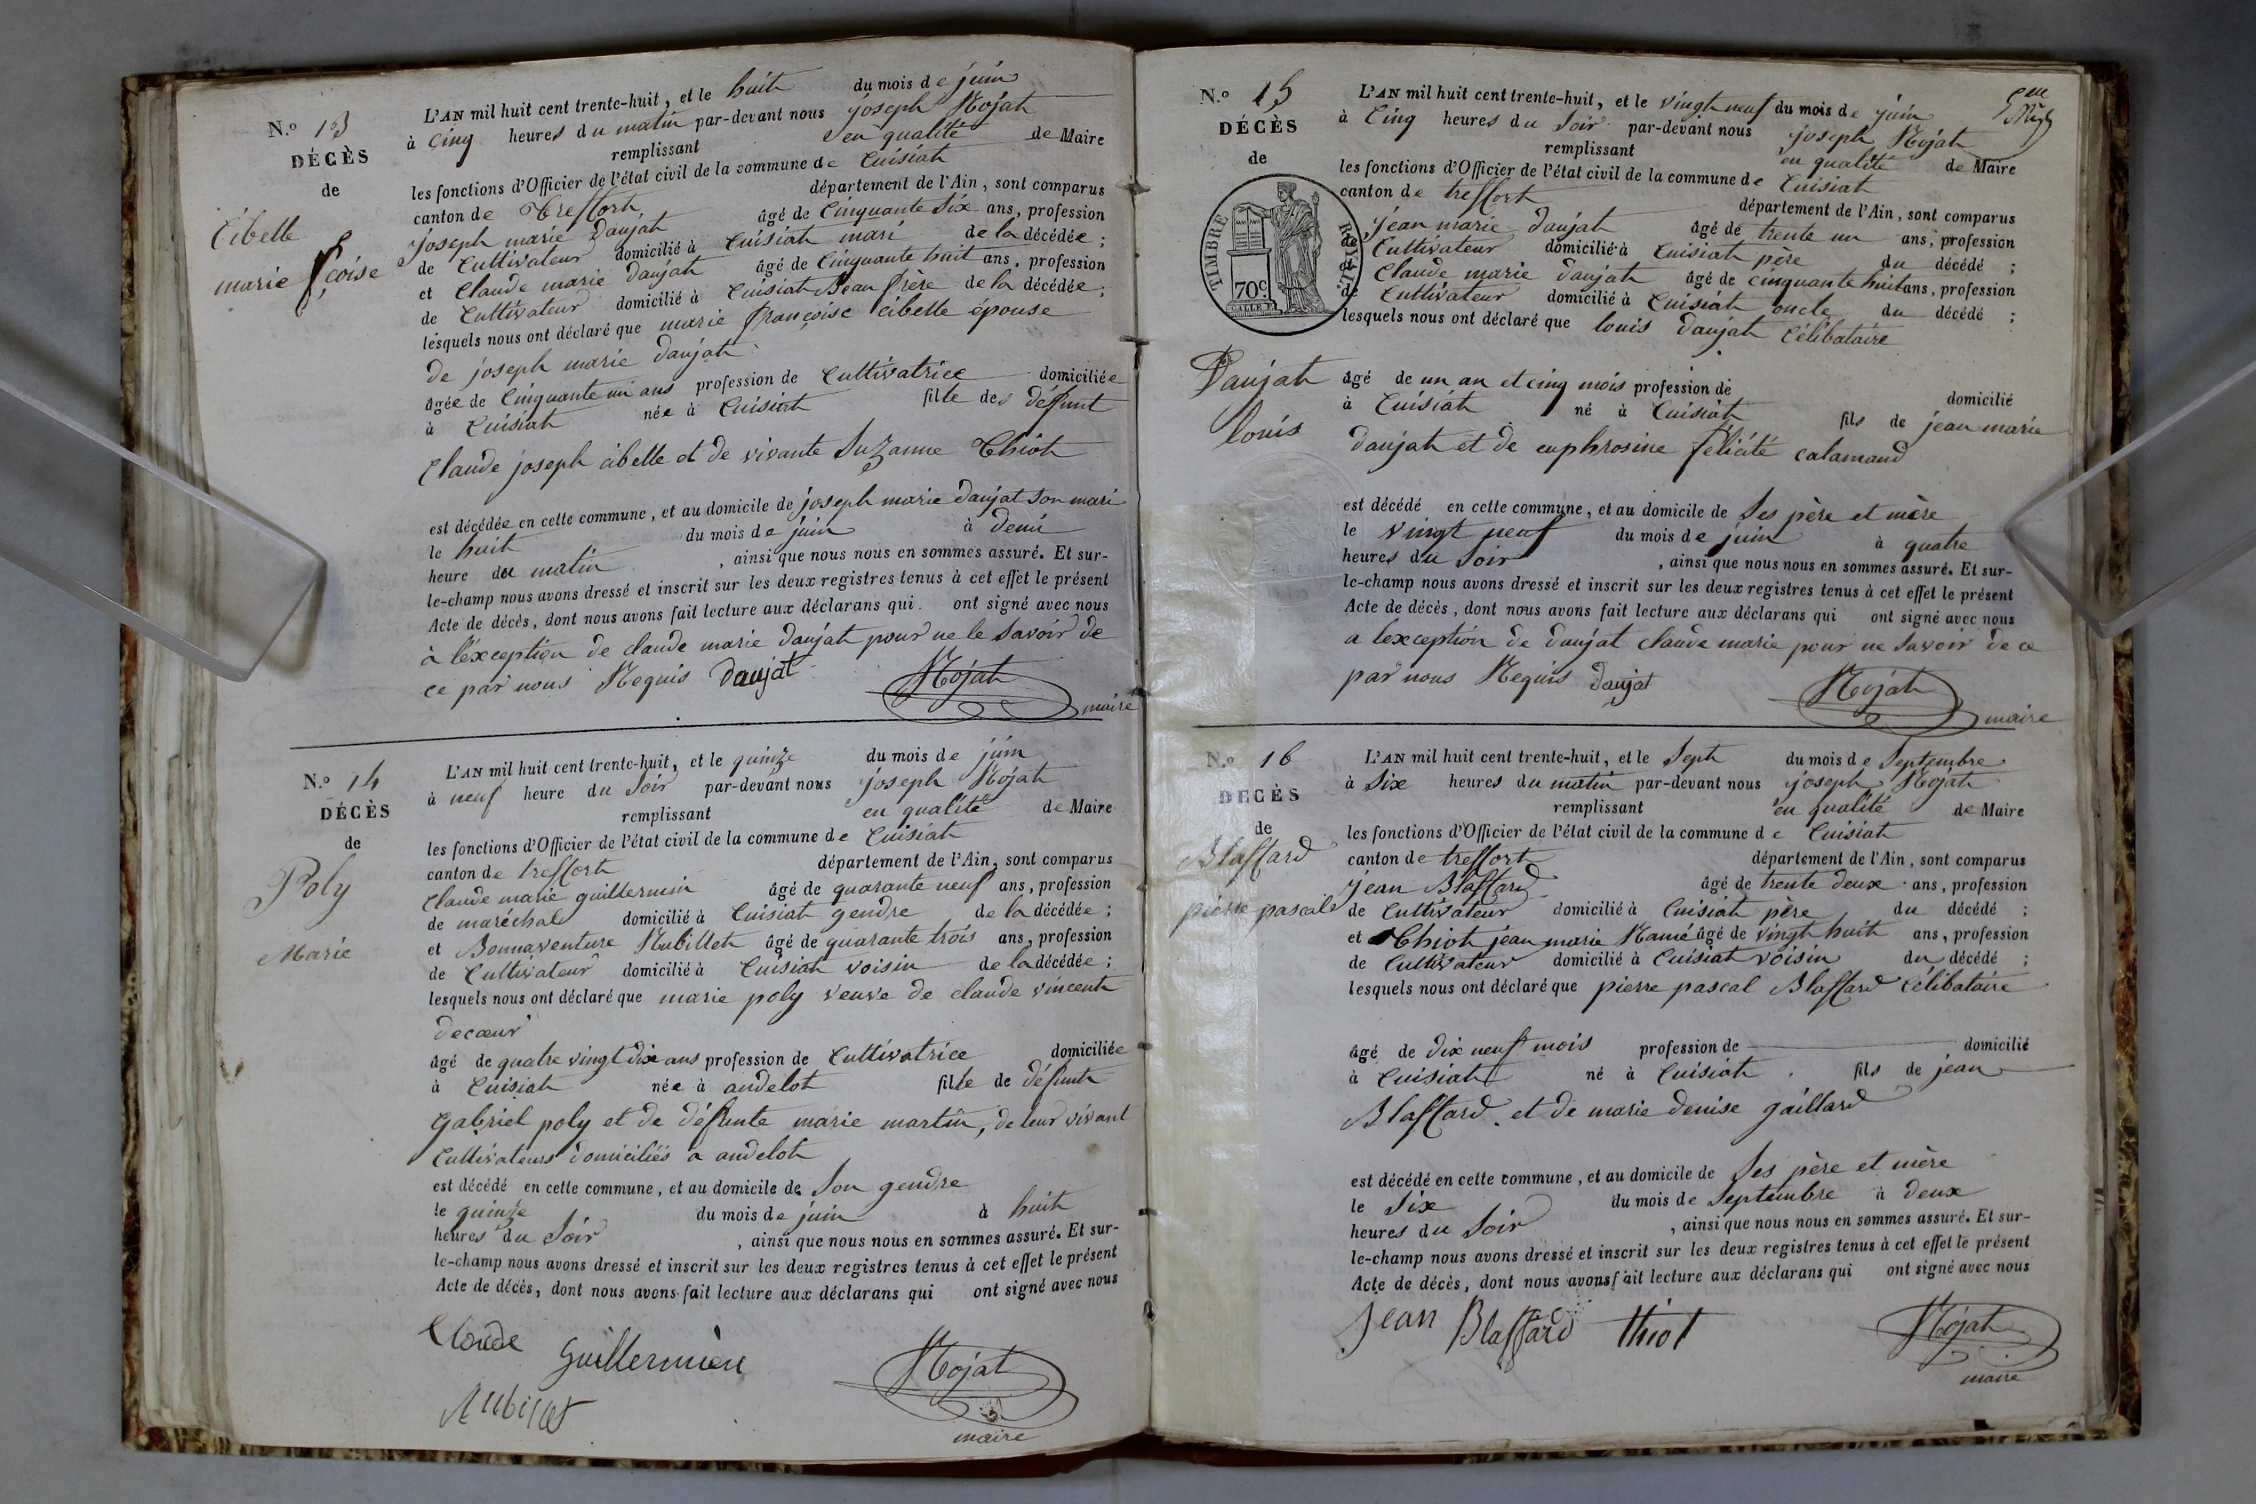 N.º 13
DÉCÈS
de
Cibelle
marie fçoise
L'AN mil huit cent trente-huit, et le huit du mois de juin
à cinq heures du matin par-devant nous joseph Nojat
remplissant en qualité de Maire
les fonctions d'Officier de l'état civil de la commune de Cuisiat
canton de Treffort département de l'Ain, sont comparus
joseph marie Daujat âgé de Cinquante Six ans, profession
de Cultivateur domicilié à Cuisiat mari de la décédée ;
et Claude marie daujat âgé de Cinquante huit ans, profession
de Cultivateur domicilié à Cuisiat Beau frère de la décédée ;
lesquels nous ont déclaré que marie françoise cibelle épouse
de joseph marie daujat
âgée de Cinquante un ans profession de Cultivatrice domiciliée
à Cuisiat née à Cuisiat fille des défunt
Claude joseph cibelle et de vivante Suzanne Thiot
est décédée en cette commune, et au domicile de joseph marie daujat son mari
le huit du mois de juin à demi
heure du matin , ainsi que nous nous en sommes assuré. Et sur-
le-champ nous avons dressé et inscrit sur les deux registres tenus à cet effet le présent
Acte de décès, dont nous avons fait lecture aux déclarans qui ont signé avec nous
à l'exception de claude marie daujat pour ne le Savoir de
ce par nous Requis Daujat Nojat
maire
N.º 14
DÉCÈS
de
Poly
Marie
L'AN mil huit cent trente-huit, et le quinze du mois de juin
à neuf heure du Soir par-devant nous joseph Nojat
remplissant en qualité de Maire
les fonctions d'Officier de l'état civil de la commune de Cuisiat
canton de treffort département de l'Ain, sont comparus
Claude marie guillermin âgé de quarante neuf ans, profession
de maréchal domicilié à Cuisiat gendre de la décédée ;
et Bonnaventure Rubillet âgé de quarante trois ans, profession
de Cultivateur domicilié à Cuisiat voisin de la décédée ;
lesquels nous ont déclaré que marie poly veuve de claude vincent
decœur
âgé de quatre vingt dix ans profession de Cultivatrice domiciliée
à Cuisiat née à andelot fille de défunt
Gabriel poly et de défunte marie martin, de leur vivant
Cultivateurs domiciliés a andelot
est décédé en cette commune, et au domicile de Son gendre
le quinze du mois de juin à huit
heures du Soir , ainsi que nous nous en sommes assuré. Et sur-
le-champ nous avons dressé et inscrit sur les deux registres tenus à cet effet le présent
Acte de décès, dont nous avons fait lecture aux déclarans qui ont signé avec nous
Claude Guillermin Nojat
Rubillet
maire
N.º 15
DÉCÈS
de
TIMBRE ROYAL
70c.
Daujat
louis
L'AN mil huit cent trente-huit, et le vingt neuf du mois de juin
à Cinq heures du Soir par-devant nous joseph Nojat
remplissant en qualité de Maire
les fonctions d'Officier de l'état civil de la commune de Cuisiat
canton de treffort département de l'Ain, sont comparus
jean marie daujat âgé de trente un ans, profession
de Cultivateur domicilié à Cuisiat père du décédé ;
et Claude marie daujat âgé de cinquante huit ans, profession
de Cultivateur domicilié à Cuisiat oncle du décédé ;
lesquels nous ont déclaré que louis daujat Célibataire
âgé de un an et cinq mois profession de domicilié
à Cuisiat né à Cuisiat fils de jean marie
daujat et de euphrosine félicité calamand
est décédé en cette commune, et au domicile de Ses père et mère
le vingt neuf du mois de juin à quatre
heures du Soir , ainsi que nous nous en sommes assuré. Et sur-
le-champ nous avons dressé et inscrit sur les deux registres tenus à cet effet le présent
Acte de décès, dont nous avons fait lecture aux déclarans qui ont signé avec nous
a lexception de daujat claude marie pour ne Savoir de ce
par nous Requis daujat Nojat
maire
N.º 16
DÉCÈS
de
Blaffard
pierre pascale
L'AN mil huit cent trente-huit, et le Sept du mois de Septembre
à Six heures du matin par-devant nous joseph Nojat
remplissant en qualité de Maire
les fonctions d'Officier de l'état civil de la commune de Cuisiat
canton de treffort département de l'Ain, sont comparus
jean Blaffard âgé de trente deux ans, profession
de Cultivateur domicilié à Cuisiat père du décédé ;
et Thiot jean marie Ramé âgé de vingt huit ans, profession
de Cultivateur domicilié à Cuisiat voisin du décédé ;
lesquels nous ont déclaré que pierre pascal Blaffard Célibataire
âgé de dix neuf mois profession de domicilié
à Cuisiat né à Cuisiat fils de jean
Blaffard et de marie denise gaillard
est décédé en cette commune, et au domicile de Ses père et mère
le Six du mois de Septembre à deux
heures du Soir , ainsi que nous nous en sommes assuré. Et sur-
le-champ nous avons dressé et inscrit sur les deux registres tenus à cet effet le présent
Acte de décès, dont nous avons fait lecture aux déclarans qui ont signé avec nous
Jean Blaffard Thiot Nojat
maire